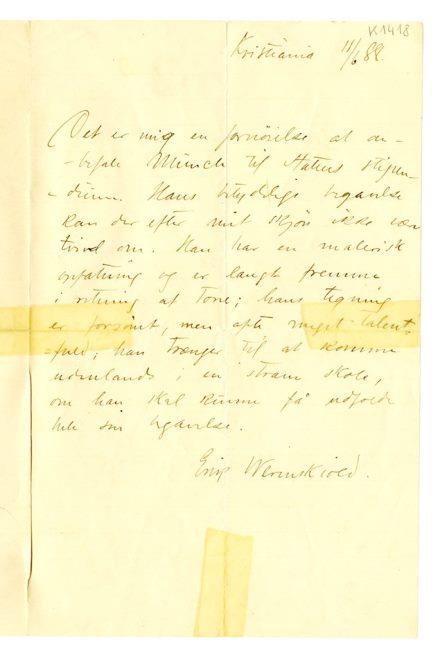 K1418
Kristiania 11/6 88.
Det er mig en fornöielse at an-
-befale Munch til Statens stipen-
-dium. Hans betydelige begavelse
kan der efter mit skjön ikke være
tvivl om. Han har en malerisk
opfatning og er langt fremme
i retning af Tone; hans tegning
er forsömt, men ofte meget talent-
-fuld; han trænger til at komme
udenlands i en stram skole,
om han skal kunne få udfolde
hele sin begavelse.
Erik Werenskiold.